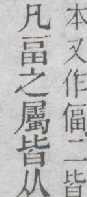 凡畐之屬皆从
本又作偪二皆